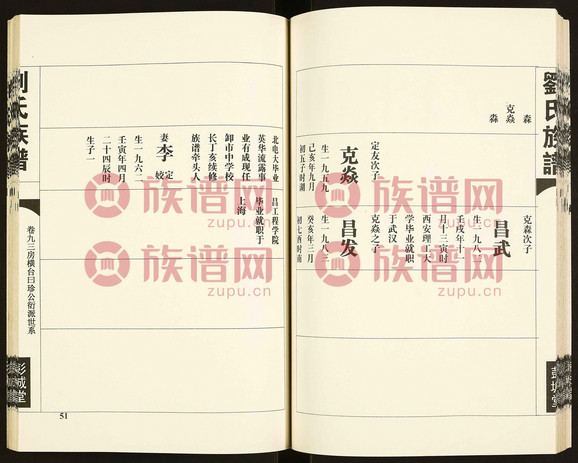 劉氏族譜
彭城堂
森
克焱
淼
克森次子
昌武
生一九八二
壬戌年十一
月十三寅时
西安理工大
学毕业就职
于武汉
定友次子
克焱
生一九五九
己亥年九月
初五子时湖
克焱之子
昌发
生一九八三
癸亥年三月
初七酉时南
北电大毕业
英华流露事
业有成现任
卸市中学校
长丁亥续修
族谱牵头人
妻李定姣
生一九六二
壬寅年四月
二十四辰时
生子一
昌工程学院
毕业就职于
上海
劉氏族譜
卷九三房横台曰珍公衍派世系
彭城堂
51
族谱网
zupu.cn
族谱网
zupu.cn
族谱网
zupu.cn
族谱网
zupu.cn